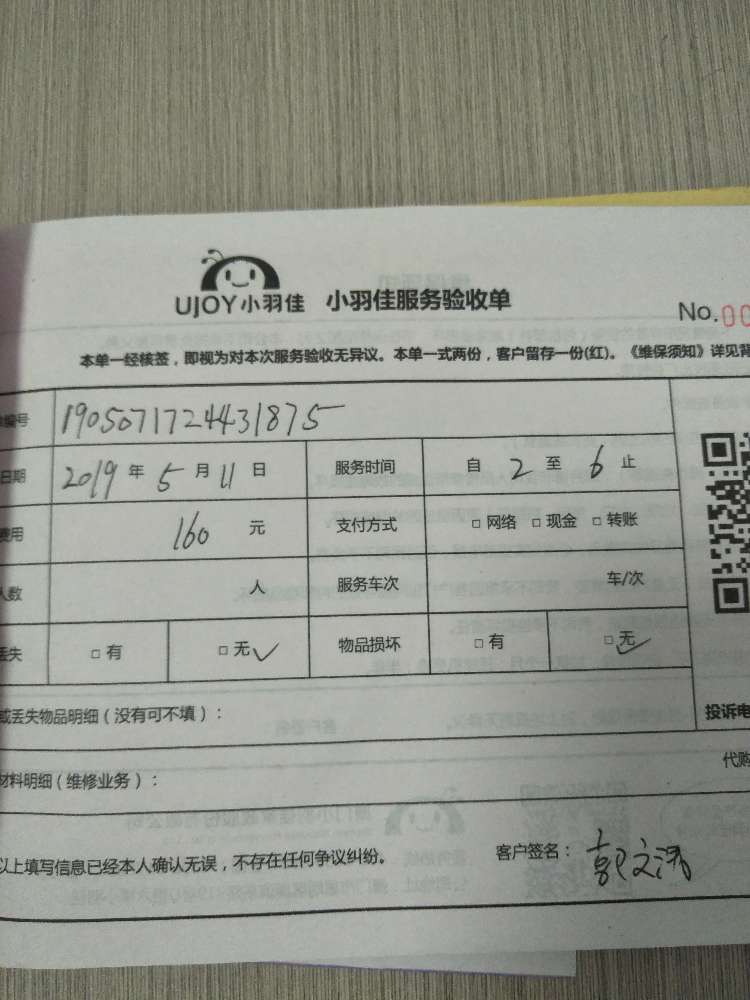 UJOY小羽佳 小羽佳服务验收单
No.00
本单一经核签，即视为对本次服务验收无异议。本单一式两份，客户留存一份(红)。《维保须知》详见背
编号 1905071724431875
日期 2019 年 5 月 11 日 服务时间 自 2 至 6 止
费用 160 元 支付方式 □ 网络 □ 现金 □ 转账
人数 人 服务车次 车/次
丢失 □ 有 □ 无✓ 物品损坏 □ 有 □ 无✓
或丢失物品明细（没有可不填）： 投诉电
材料明细（维修业务）： 代购
以上填写信息已经本人确认无误，不存在任何争议纠纷。 客户签名：郭文